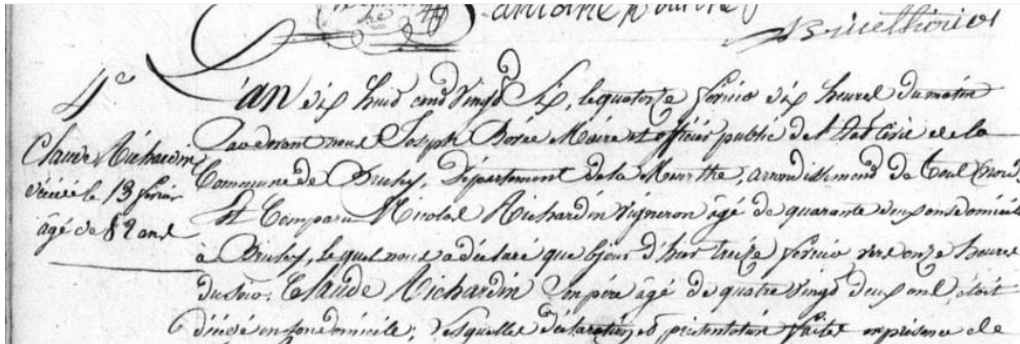 4e
Claude Richardin
décédé le 13 février
âgé de 82 ans
L'an dix huit cent vingt Six, le quatorze février dix heures du matin
Pardevant nous Joseph Maire et officier public de l'état Civil de la
Commune de Bruley, Département de la Meurthe, arrondissement de Toul
Est Comparu Nicolas Richardin vigneron âgé de quarante deux ans domicilié
à Bruley, lequel nous a déclaré que le jour d'hier treize février vers onze heures
du soir, Claude Richardin Son père âgé de quatre vingt deux ans, était
décédé en son domicile; desquelles déclaration et présentation faites en présence de